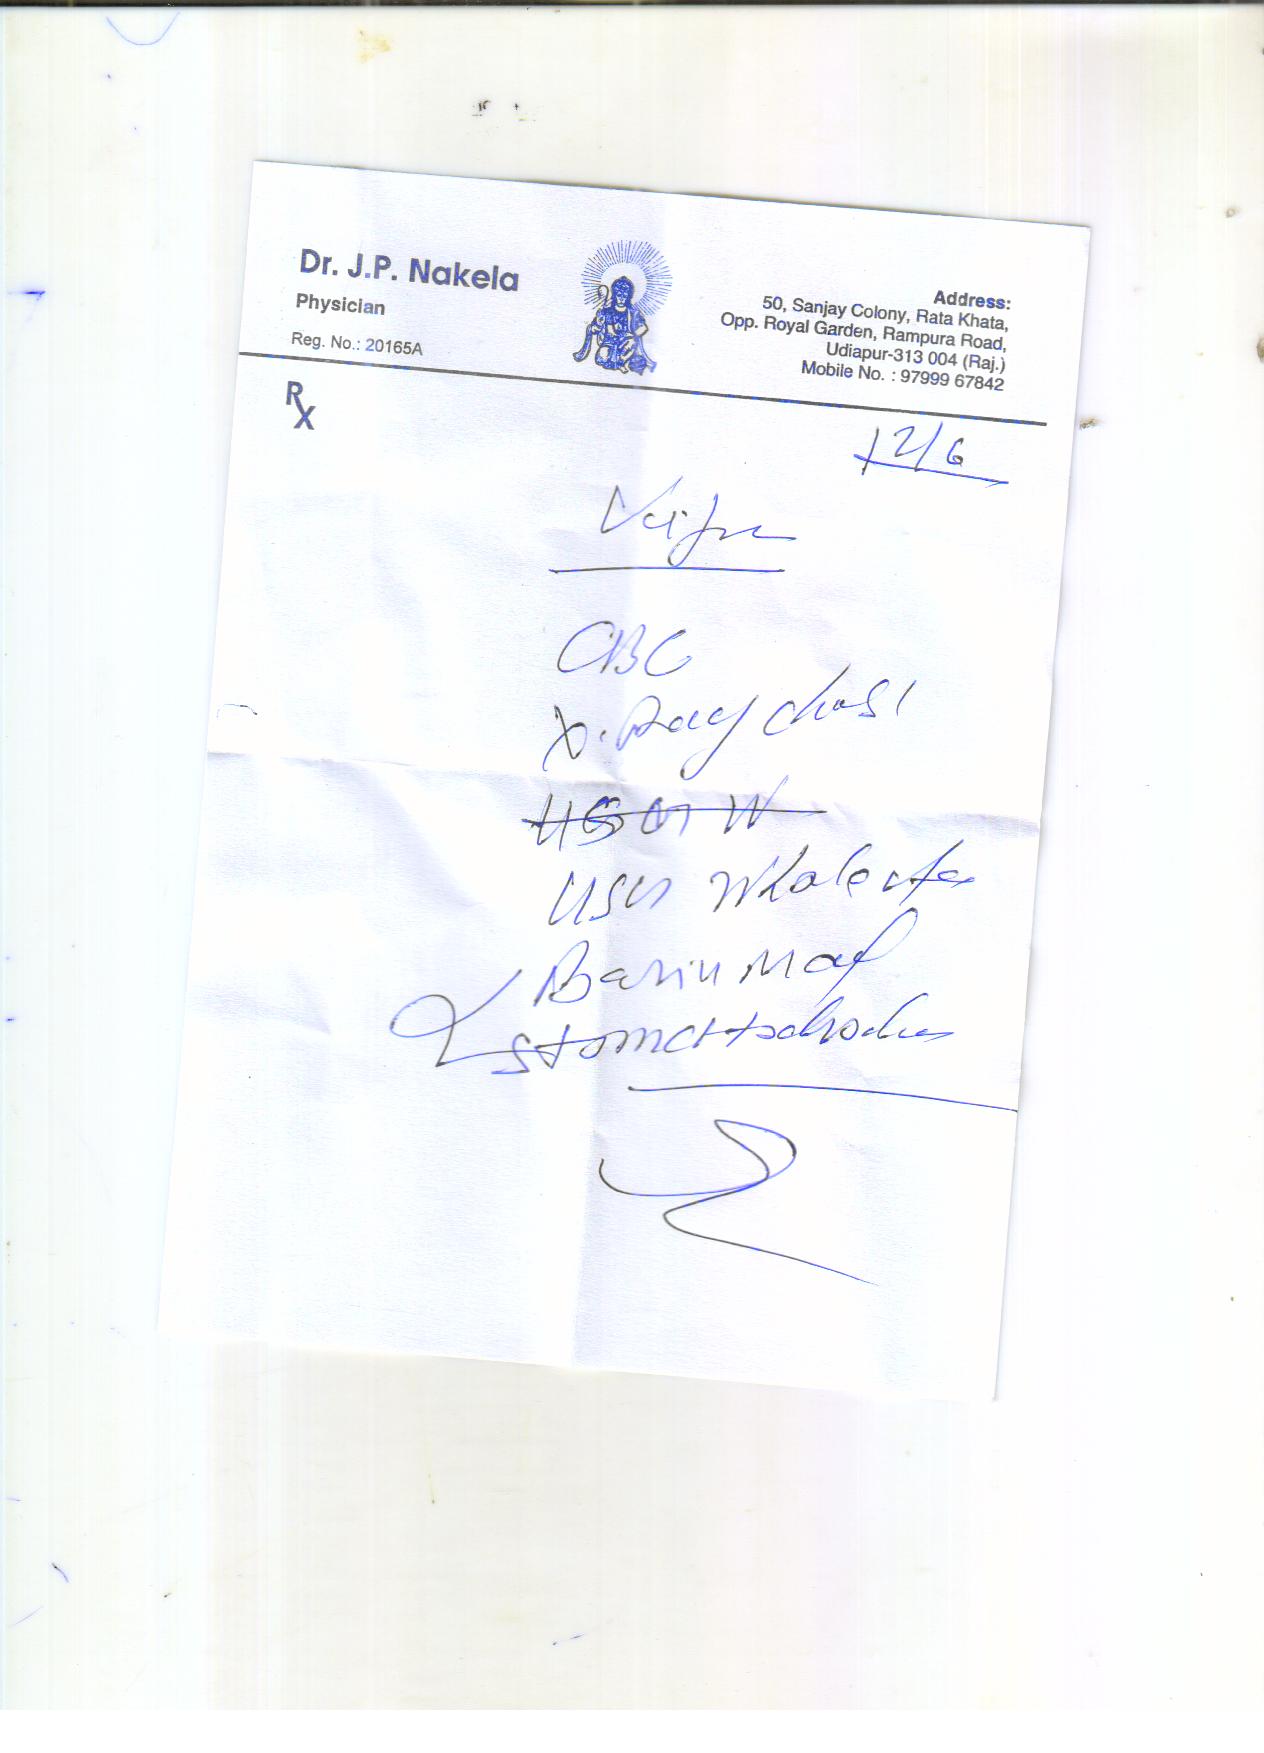 Dr. J.P. Nakela
Physician
Reg. No.: 20165A
Address:
50, Sanjay Colony, Rata Khata,
Opp. Royal Garden, Rampura Road,
Udiapur-313 004 (Raj.)
Mobile No. : 97999 67842
Rx
12/6
CBC
X. Ray chest
USG Whole
Barium